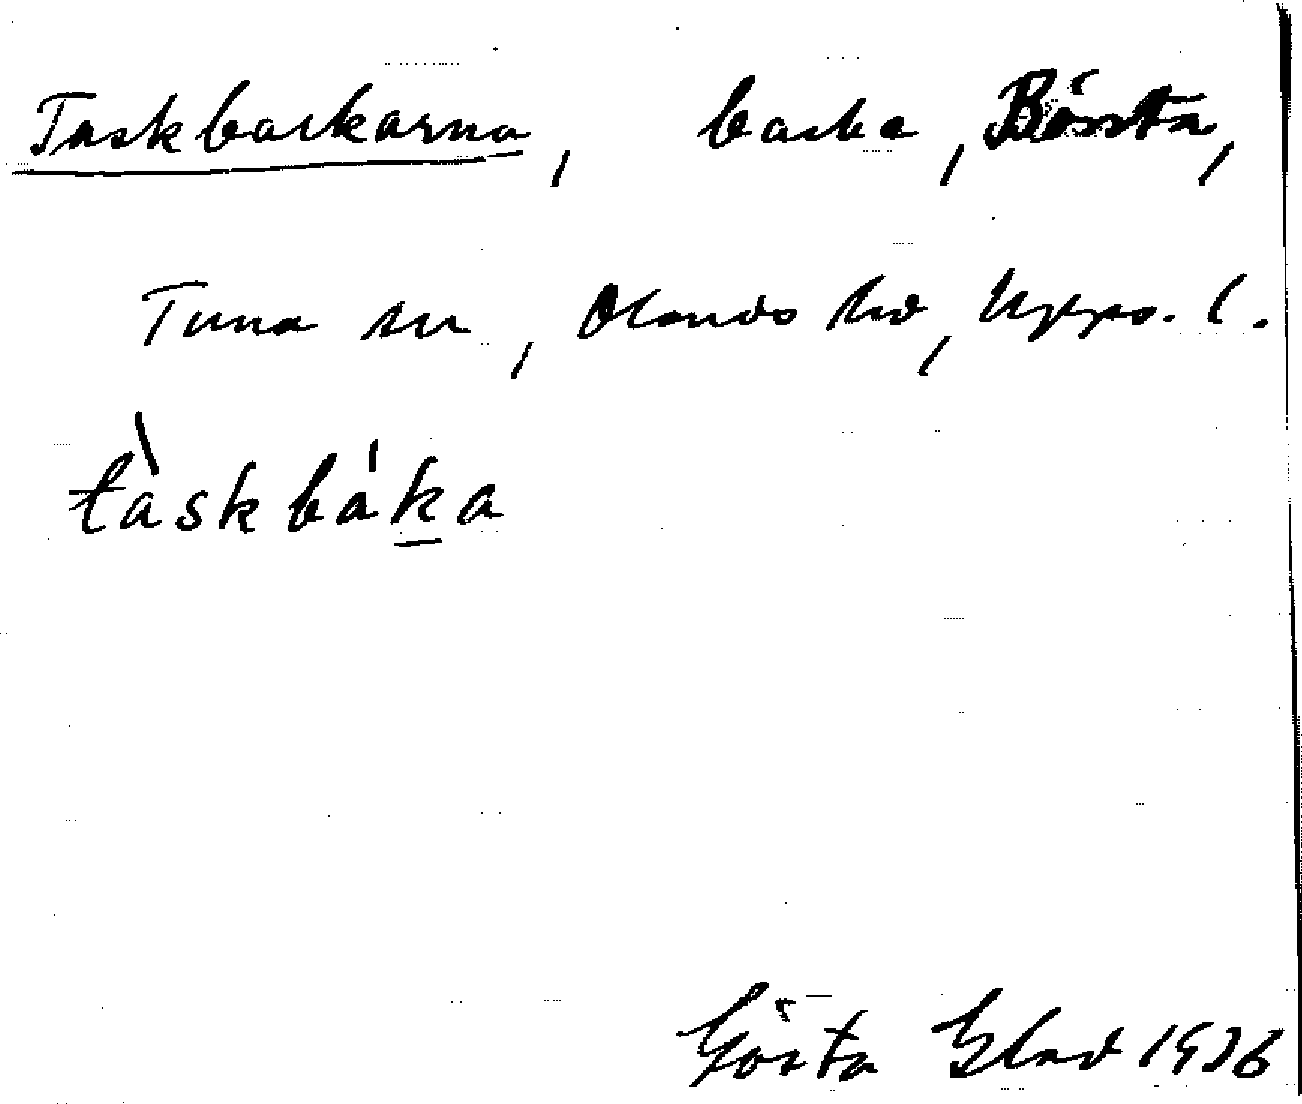 Taskbackarna, backe, Bössta,
Tuna sn, Olands hd, Upps. l.
tàskbáka
Gösta Blad 1936